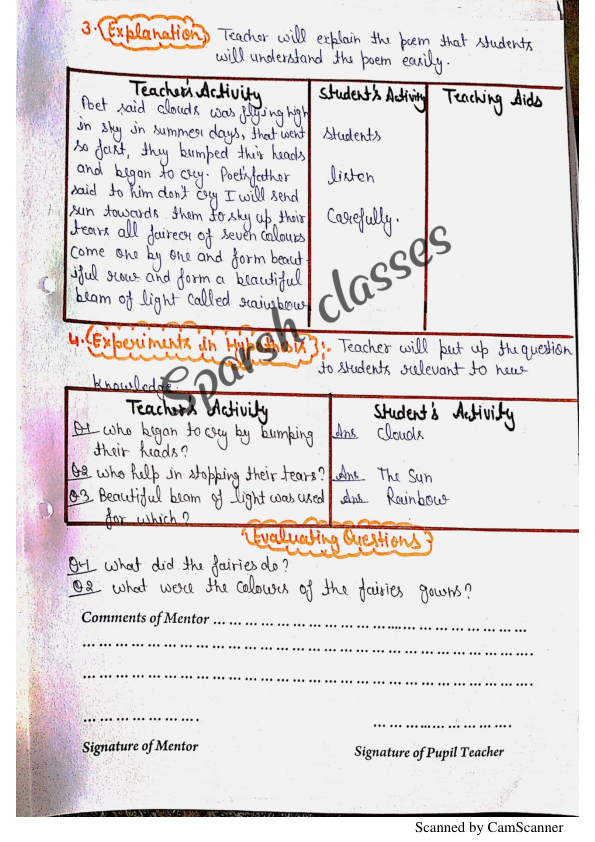 3. Explanation Teacher will explain the poem that students
will understand the poem easily.
Teacher's Activity
Poet said clouds was flying high
in sky in summer days, that went
so fast, they bumped their heads
and began to cry. Poet's father
said to him don't cry I will send
sun towards them to sky up their
tears all faireer of seven colours
come one by one and form beaut-
iful row and form a beautiful
beam of light called rainbow
Student's Activity
students
listen
Carefully.
Teaching Aids
Sparsh classes
4. Experiments in Hypothesis :- Teacher will put up the question
to students relevant to new
Knowledge.
Teacher's Activity
Q1 who began to cry by bumping
their heads?
Q2 who help in stopping their tears?
Q3 Beautiful beam of light was used
for which?
Student's Activity
Ans Clouds
Ans The Sun
Ans Rainbow
Evaluating Questions
Q1 what did the fairies do?
Q2 what were the colours of the fairies gowns?
Comments of Mentor ... ... ... ... ... ... ... ... ... ... ... ... ... ... ... ... ... ...
... ... ... ... ... ... ... ... ... ... ... ... ... ... ... ... ... ... ... ... ... ... ... ... ... ...
... ... ... ... ... ... ... ... ... ... ... ... ... ... ... ... ... ... ... ... ... ... ... ... ... ...
... ... ... ... ... ... .
... ... ... ... ... ... ... ... .
Signature of Mentor
Signature of Pupil Teacher
Scanned by CamScanner